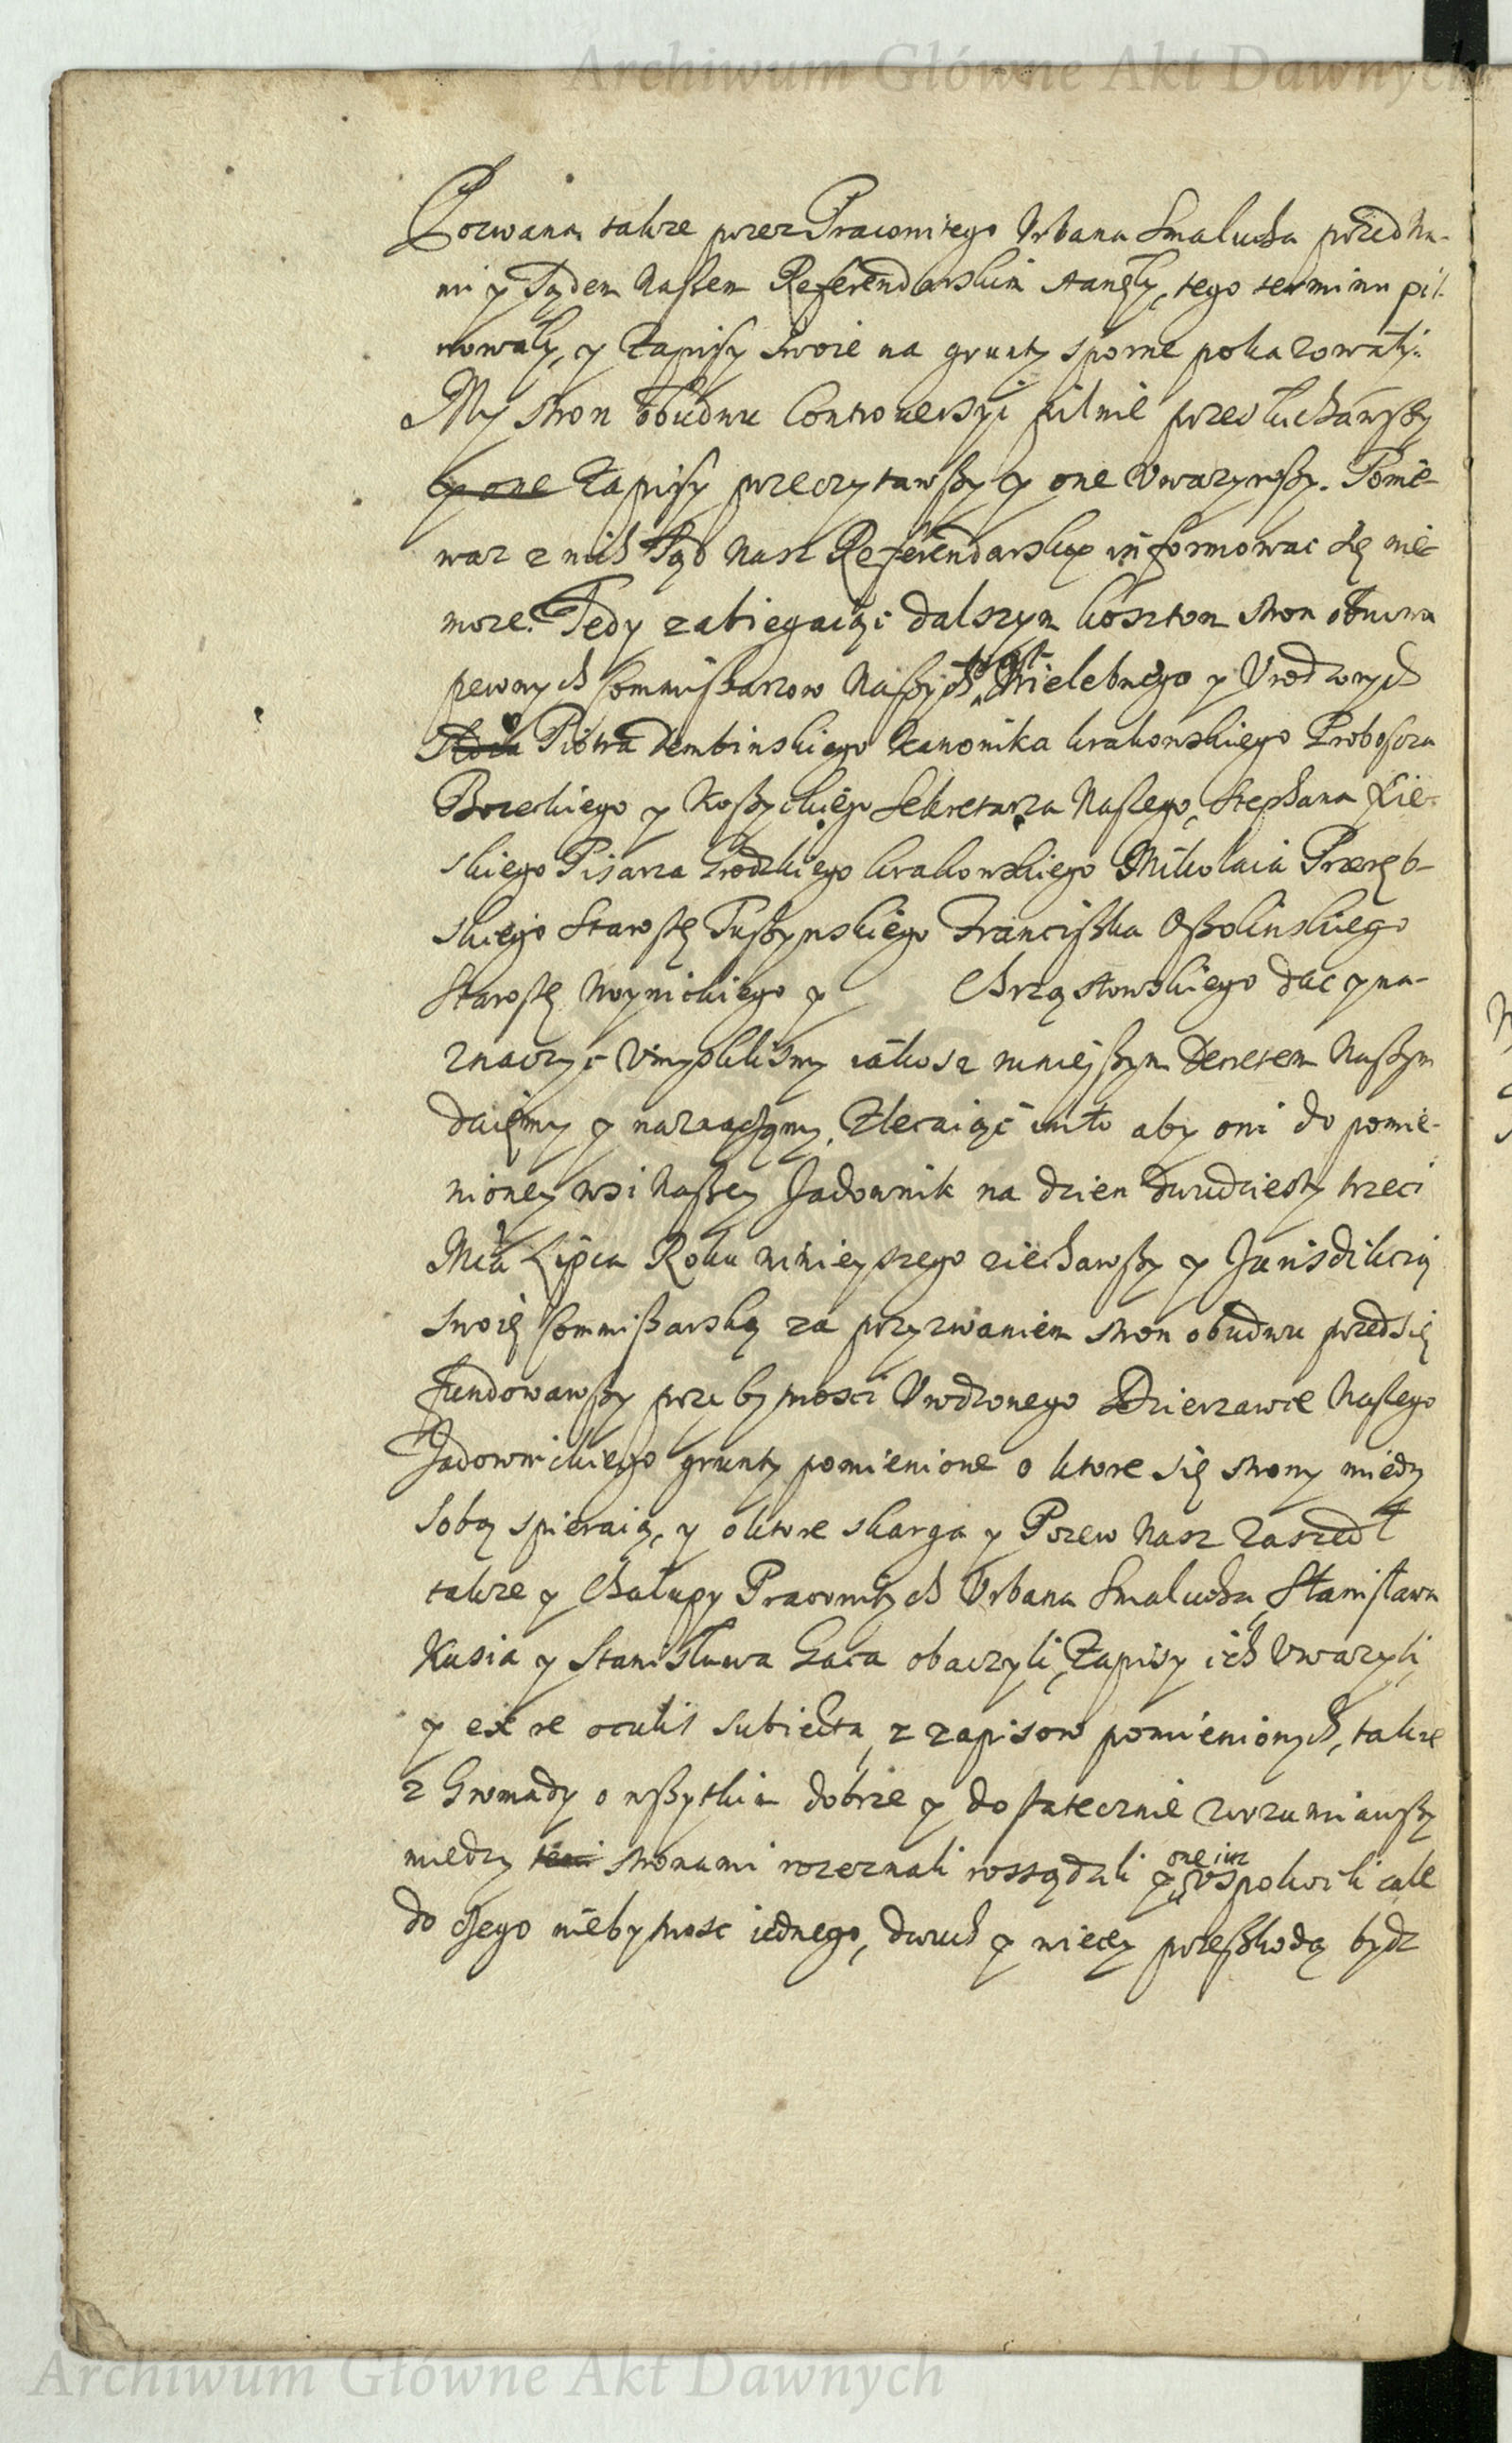 Archiwum Główne Akt Dawnych
Pozwana takze przez Pracowitego Vrbana Smalucha przed Na-
mi y Sądem Naszem Referendarskim stanęły, tego terminu pil-
nowały, y Zapisy swoie na grunty sporne pokazowały.
My stron obudwu Controuersyi pilnie przesłuchawszy
y one Zapisy przeczytawszy y one Vwazywszy. Ponie-
waz z nich Sąd Nasz Referendarsky informowac się nie
moze. Tedy zabiegaiąc dalszym kosztom stron obudwu
pewnych Commissarzow Naszych Wielebnego y Vrodzonych
Piotra Dembinskiego Kanonika krakowskiego Proboszcza
Bozeckiego y Koszyckiego Sekretarza Naszego, Stephana Lie-
skiego Pisarza Grodzkiego krakowskiego Mikołaia Przeręb-
skiego Starostę Tuszynskiego Franciszka Ossolinskiego
Starostę Woynickiego y Chrząstowskiego dac y na-
znaczyc Vmyslilismy iakosz ninieyszym Decretem Naszym
daięmy y naznaczamy, Zlecaiąc im to aby oni do pomie-
nioney wsi Naszey Jadownik na dzien dwudziesty trzeci
Mca Lipca Roku ninieyszego ziechawszy y Jurisdikcią
swoię Commissarską za przyzwaniem stron obudwu przed się
fundowawszy przy bytnosci Vrodzonego Dzierzawce Naszego
Jadownickiego grunty pomienione o ktore się strony miedzy
sobą spieraią, y o ktore skarga y Pozew Nasz zaszedł
takze y Chałupy Pracowitych Vrbana Smalucha, Stanisława
Kusia y Stanisława Gaca obaczyli, Zapisy ich Vwazyli,
y ex re oculis subiecta, z zapisow pomienionych, takze
z Gromady o wszytkim dobrze y dostatecznie wyrozumiawszy
miedzy temi stronami rozeznali rossądzili y one iuz vspokoili cale
do czego niebytnosc iednego, dwuch y wiecey przeszkodą bydz
Archiwum Główne Akt Dawnych